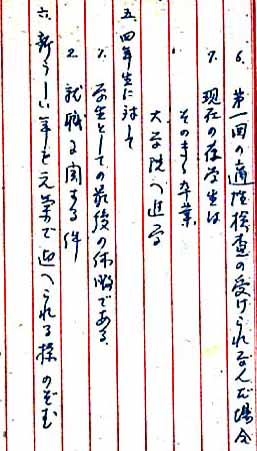 6. 第一回の適性検査の受けられなんだ場合
7. 現在の在学生は
そのまゝ卒業
大学院へ進学
五、四年生に対して
1. 学生としての最後の休暇である
2. 就職に関する件
六、新らしい年を元気で迎へられる様のぞむ